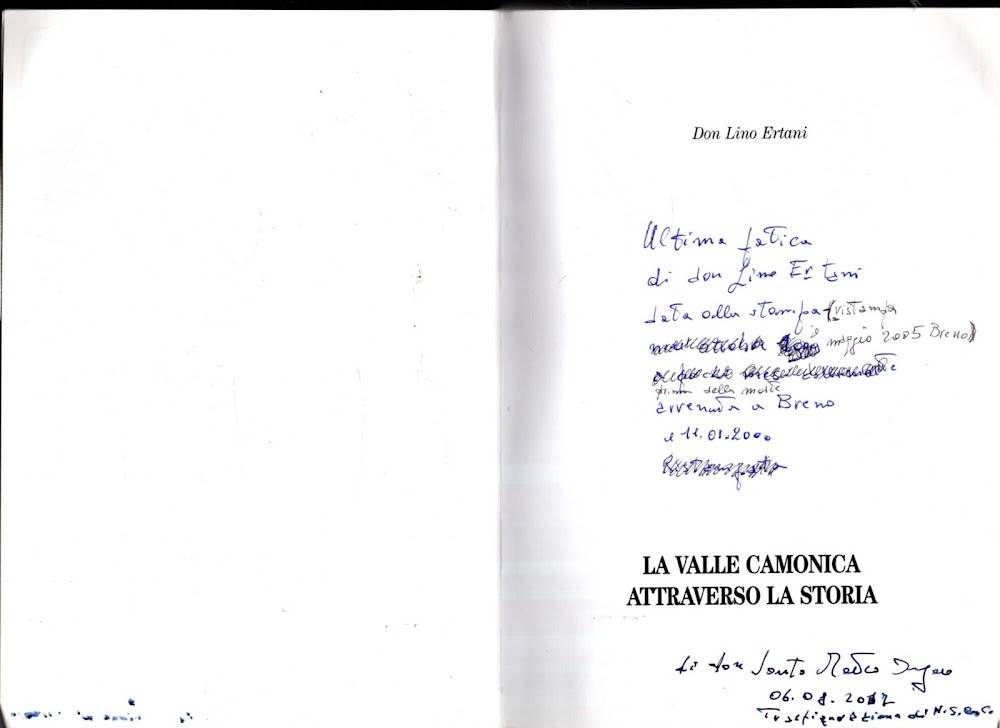 Don Lino Ertani
Ultima fatica
di don Lino Ertani
data alla stampa (ristampa
maggio 2005 Breno)
prima della morte
avvenuta a Breno
il 11.01.2000
LA VALLE CAMONICA
ATTRAVERSO LA STORIA
di don Santo
06.08.2012
Trasfigurazione di N.S.